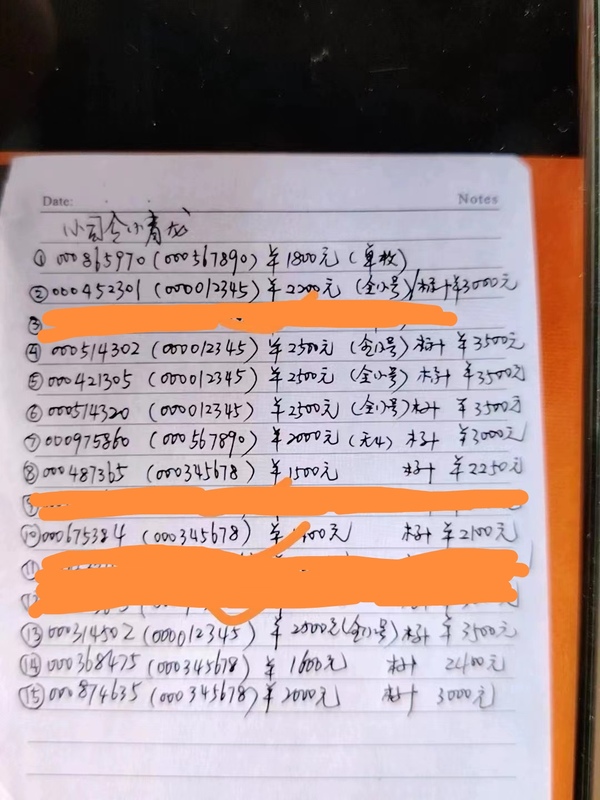 Date:
Notes
小司令小青龙
① 000865970 (000567890) ¥1800元 (单枚)
② 000452301 (000012345) ¥2200元 (全小号)/标十¥3000元
③
④ 000514302 (000012345) ¥2500元 (全小号) 标十 ¥3500元
⑤ 000421305 (000012345) ¥2500元 (全小号) 标十 ¥3500元
⑥ 000514320 (000012345) ¥2500元 (全小号) 标十 ¥3500元
⑦ 000975860 (000567890) ¥2000元 (无4) 标十 ¥3000元
⑧ 000487365 (000345678) ¥1500元 标十 ¥2250元
⑩ 000675384 (000345678) ¥ 标十 ¥2100元
⑪
⑬ 000314502 (000012345) ¥2500元 (全小号) 标十 ¥3500元
⑭ 000368475 (000345678) ¥1600元 标十 2400元
⑮ 000874635 (000345678) ¥2000元 标十 3000元